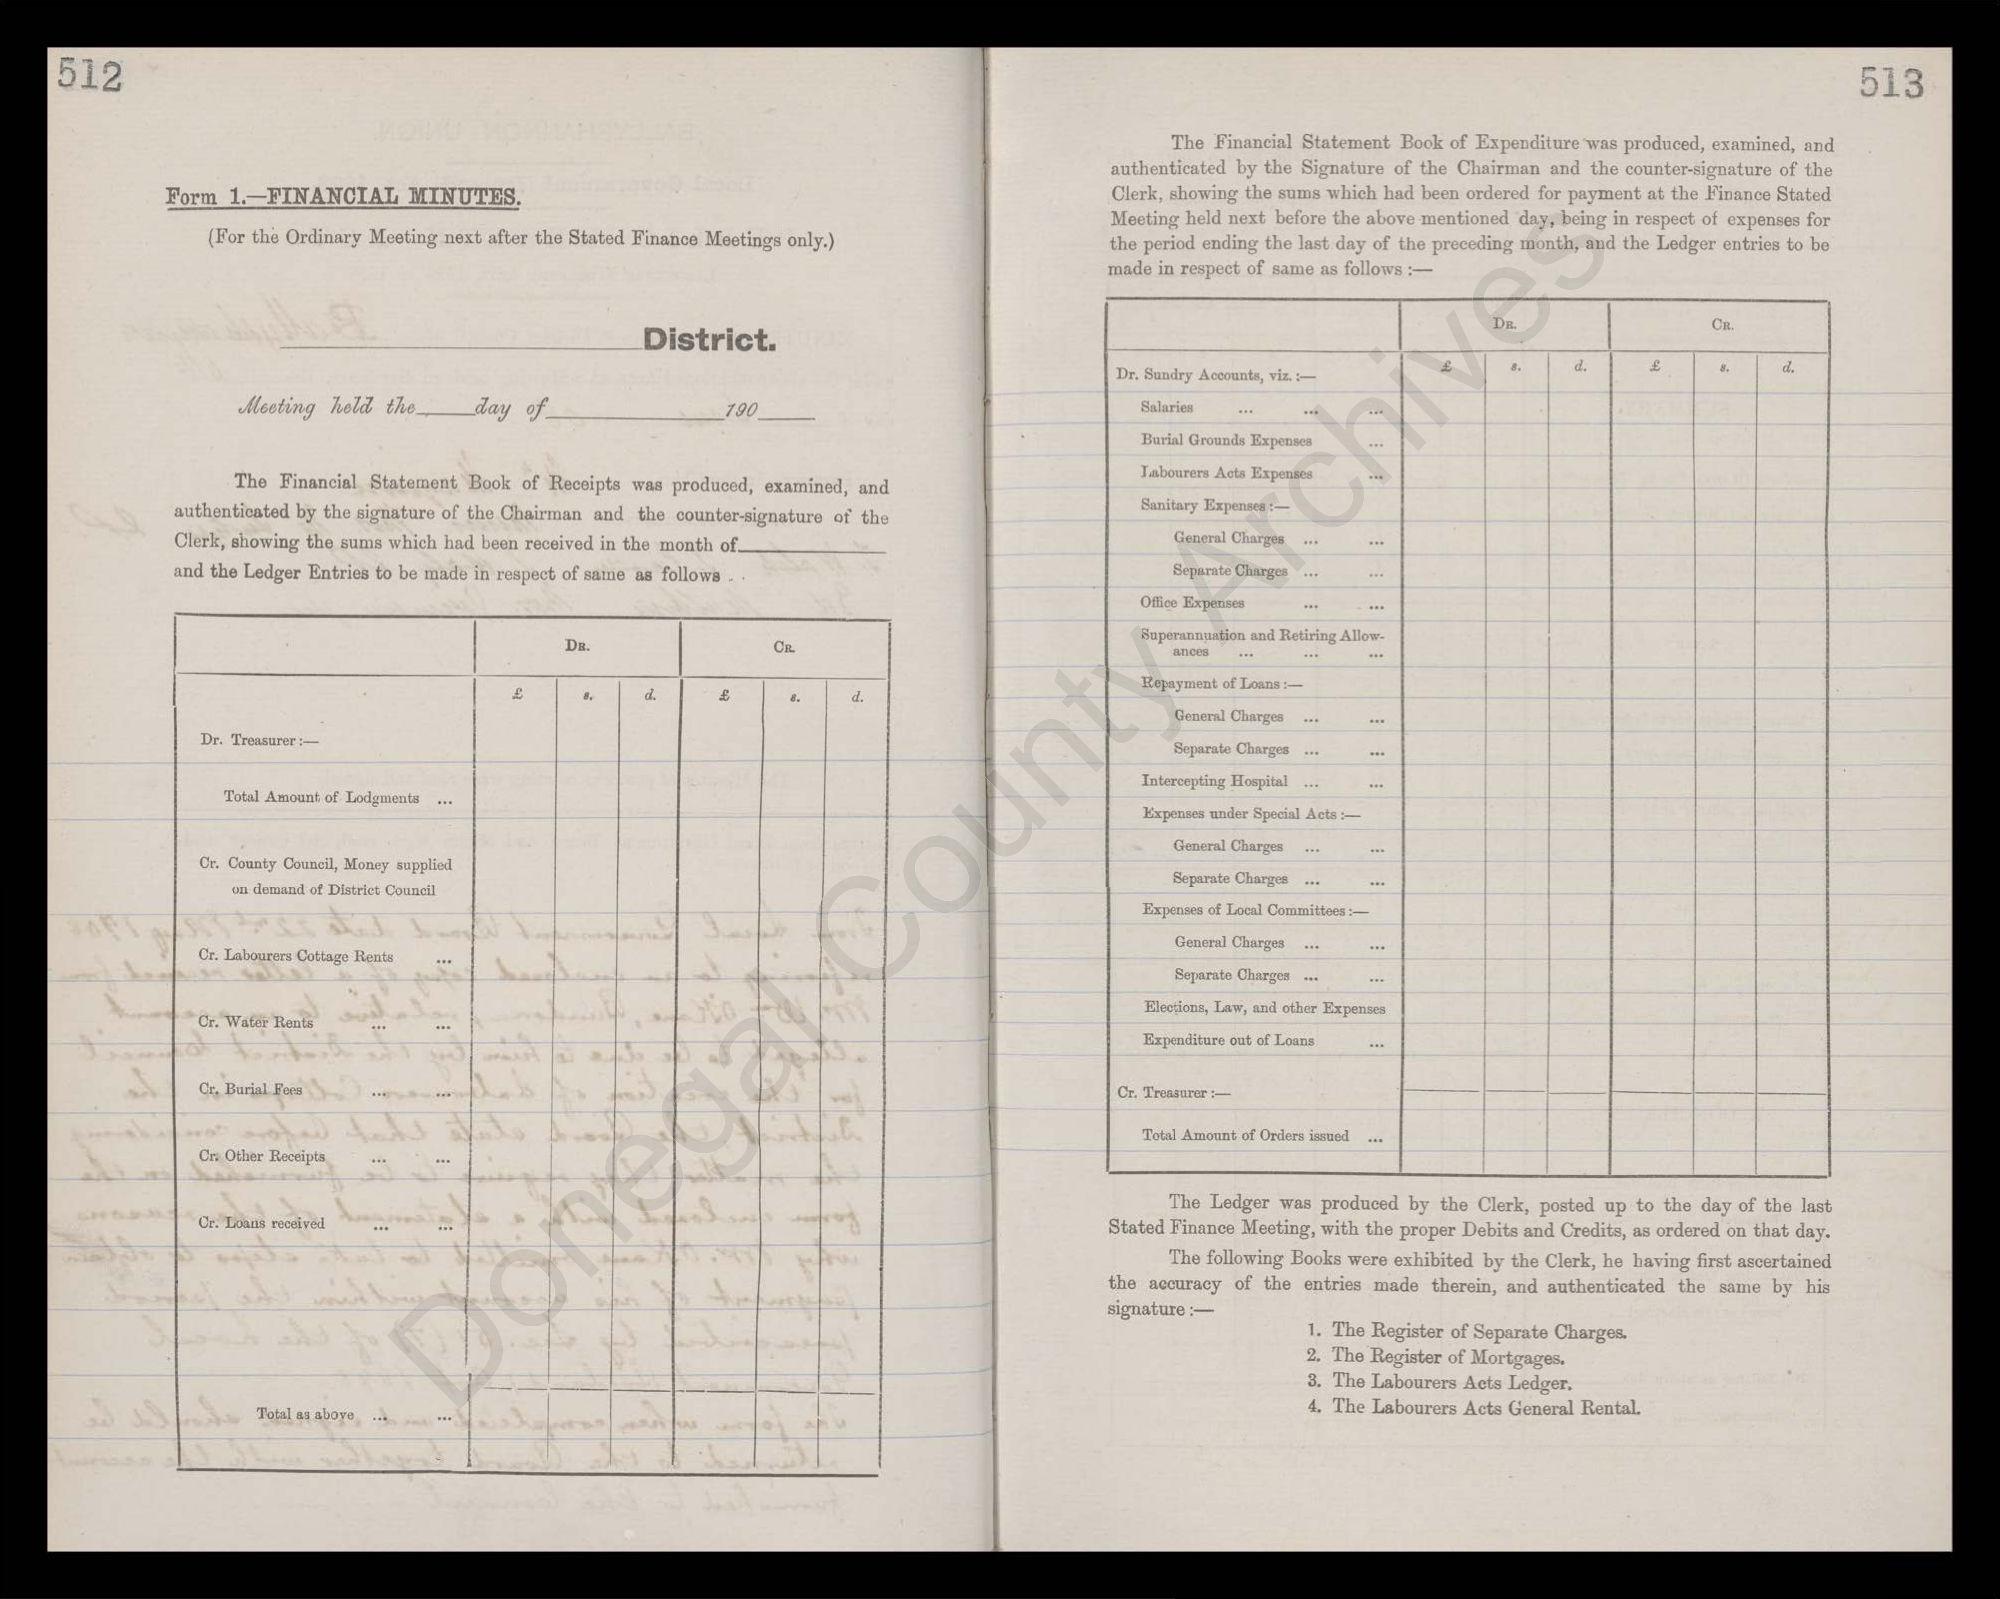 512
Form 1.—FINANCIAL MINUTES.
(For the Ordinary Meeting next after the Stated Finance Meetings only.)
District.
Meeting held the day of 190
The Financial Statement Book of Receipts was produced, examined, and
authenticated by the signature of the Chairman and the counter-signature of the
Clerk, showing the sums which had been received in the month of
and the Ledger Entries to be made in respect of same as follows . .
DR. CR.
£ s. d. £ s. d.
Dr. Treasurer :—
Total Amount of Lodgments ...
Cr. County Council, Money supplied
on demand of District Council
Cr. Labourers Cottage Rents ...
Cr. Water Rents ... ...
Cr. Burial Fees ... ...
Cr. Other Receipts ... ...
Cr. Loans received ... ...
Total as above ... ...
513
The Financial Statement Book of Expenditure was produced, examined, and
authenticated by the Signature of the Chairman and the counter-signature of the
Clerk, showing the sums which had been ordered for payment at the Finance Stated
Meeting held next before the above mentioned day, being in respect of expenses for
the period ending the last day of the preceding month, and the Ledger entries to be
made in respect of same as follows :—
DR. CR.
£ s. d. £ s. d.
Dr. Sundry Accounts, viz. :—
Salaries ... ... ...
Burial Grounds Expenses ...
Labourers Acts Expenses ...
Sanitary Expenses :—
General Charges ... ...
Separate Charges ... ...
Office Expenses ... ...
Superannuation and Retiring Allow-
ances ... ... ...
Repayment of Loans :—
General Charges ... ...
Separate Charges ... ...
Intercepting Hospital ... ...
Expenses under Special Acts :—
General Charges ... ...
Separate Charges ... ...
Expenses of Local Committees :—
General Charges ... ...
Separate Charges ... ...
Elections, Law, and other Expenses
Expenditure out of Loans ...
Cr. Treasurer :—
Total Amount of Orders issued ...
The Ledger was produced by the Clerk, posted up to the day of the last
Stated Finance Meeting, with the proper Debits and Credits, as ordered on that day.
The following Books were exhibited by the Clerk, he having first ascertained
the accuracy of the entries made therein, and authenticated the same by his
signature :—
1. The Register of Separate Charges.
2. The Register of Mortgages.
3. The Labourers Acts Ledger.
4. The Labourers Acts General Rental.
Donegal County Archives